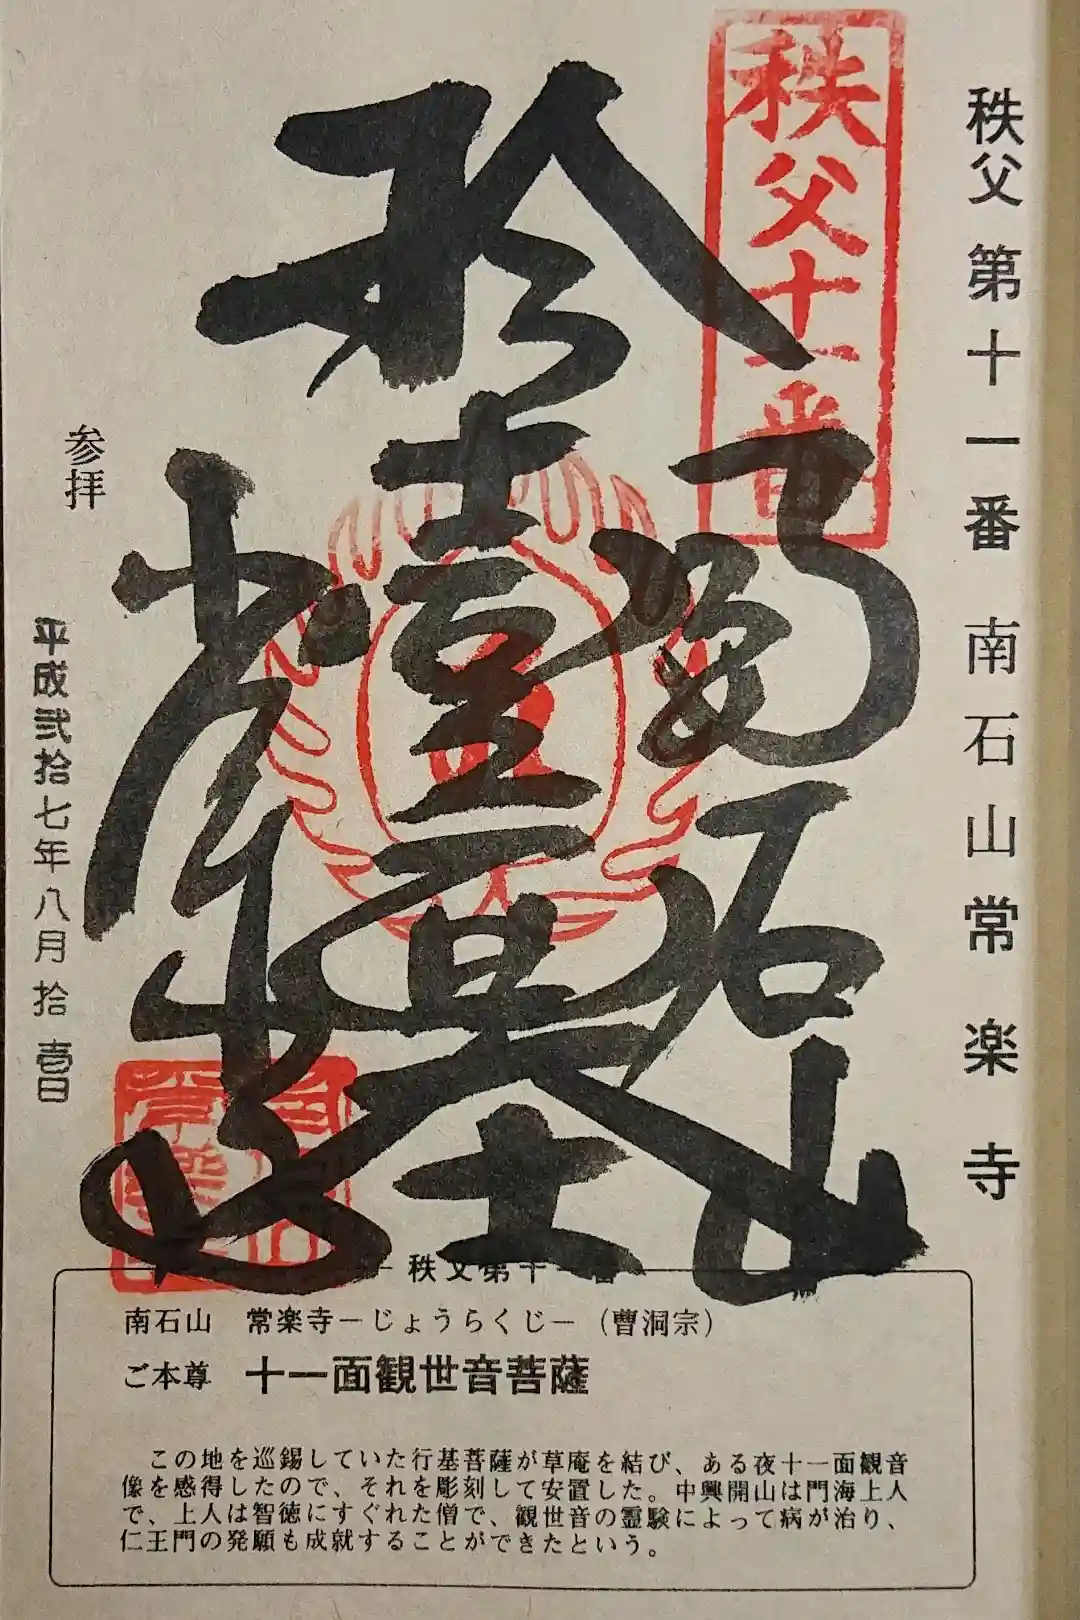 秩父第十一番南石山常楽寺
秩父十一番
石山
参拝
平成弐拾七年八月拾壱日
秩父第十一番
南石山 常楽寺－じょうらくじ－（曹洞宗）
ご本尊 十一面観世音菩薩
この地を巡錫していた行基菩薩が草庵を結び、ある夜十一面観音
像を感得したので、それを彫刻して安置した。中興開山は門海上人
で、上人は智徳にすぐれた僧で、観世音の霊験によって病が治り、
仁王門の発願も成就することができたという。